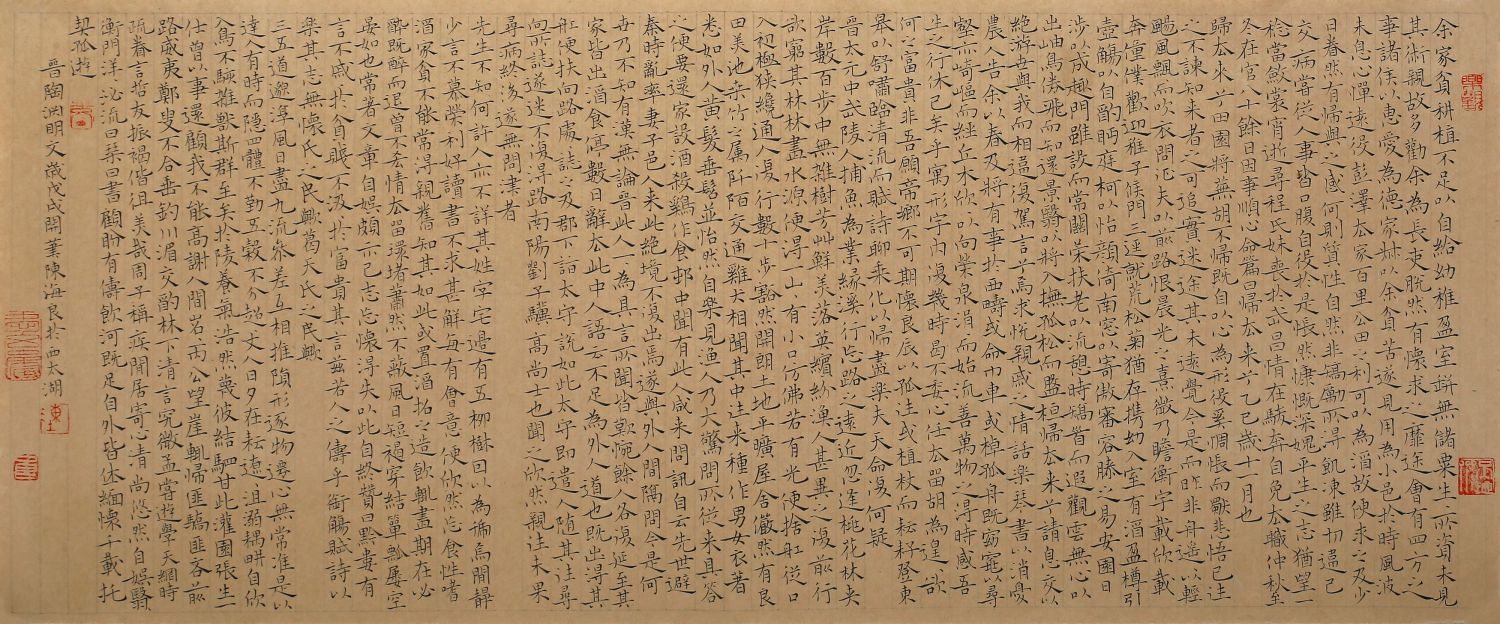 余家貧耕植不足以自給幼稚盈室缾無儲粟生生所資未見
其術親故多勸余為長吏脫然有懷求之靡途會有四方之
事諸侯以惠愛為德家叔以余貧苦遂見用為小邑於時風波
未息心憚遠役彭澤去家百里公田之利可以為酒故便求之及少
日眷然有歸與之情何則質性自然非矯厲所得飢凍雖切違己
交病嘗從人事皆口腹自役於是悵然慷慨深愧平生之志猶望一
稔當斂裳宵逝尋程氏妹喪於武昌情在駿奔自免去職仲秋至
冬在官八十餘日因事順心命篇曰歸去來兮乙巳歲十一月也
歸去來兮田園將蕪胡不歸既自以心為形役奚惆悵而獨悲悟已往
之不諫知來者之可追實迷途其未遠覺今是而昨非舟遙以輕
颺風飄而吹衣問征夫以前路恨晨光之熹微乃瞻衡宇載欣載
奔僮僕歡迎稚子候門三逕就荒松菊猶存攜幼入室有酒盈樽引
壺觴以自酌眄庭柯以怡顏倚南窗以寄傲審容膝之易安園日
涉以成趣門雖設而常關策扶老以流憩時矯首而遐觀雲無心以
出岫鳥倦飛而知還景翳以將入撫孤松而盤桓歸去來兮請息交以
絕游世與我而相違復駕言兮焉求悅親戚之情話樂琴書以消憂
農人告余以春及將有事於西疇或命巾車或棹孤舟既窈窕以尋
壑亦崎嶇而經丘木欣以向榮泉涓而始流善萬物之得時感吾
生之行休已矣乎寓形宇內復幾時曷不委心任去留胡為遑欲
何之富貴非吾願帝鄉不可期懷良辰以孤往或植杖而耘耔登東
皋以舒嘯臨清流而賦詩聊乘化以歸盡樂夫天命復何疑
晉太元中武陵人捕魚為業緣溪行忘路之遠近忽逢桃花林夾
岸數百步中無雜樹芳艸鮮美落英繽紛漁人甚異之復前行
欲窮其林林盡水源便得一山山有小口彷彿若有光便捨舡從口
入初極狹纔通人復行數十步豁然開朗土地平曠屋舍儼然有良
田美池桑竹之屬阡陌交通雞犬相聞其中往來種作男女衣著
悉如外人黃髮垂髫並怡然自樂見漁人乃大驚問所從來具答
之便要還家設酒殺雞作食邨中聞有此人咸來問訊自云先世避
秦時亂率妻子邑人來此絕境不復出焉遂與外人間隔問今是何
世乃不知有漢無論晉此人一為具言所聞皆歎惋餘人各復延至其
家皆出酒食停數日辭去此中人語云不足為外人道也既出得其
舡便扶向路處誌之及郡下詣太守說如此太守即遣人隨其往尋
向所誌遂迷不復得路南陽劉子驥高尚士也聞之欣然親往未果
尋病終後遂無問津者
先生不知何許人亦不詳其姓字宅邊有五柳樹因以為號焉閒靜
少言不慕榮利好讀書不求甚解每有會意便欣然忘食性嗜
酒家貧不能常得親舊知其如此或置酒招之造飲輒盡期在必
醉既醉而退曾不吝情去留環堵蕭然不蔽風日短褐穿結簞瓢屢空
晏如也常著文章自娛頗示己志忘懷得失以此自終贊曰黔婁有
言不戚於貧賤不汲於富貴其言茲若人之儔乎銜觴賦詩以
樂其志無懷氏之民歟葛天氏之民歟
三五道邈淳風日盡九流參差互相推隕形逐物遷心無常準是以
達人有時而隱四體不勤五穀不分超丈人日夕在耘遼沮溺耦耕自欣
入鳥不駭雜獸斯群至矣於陵養氣浩然蔑彼結駟甘此灌園張生一
仕曾以事還顧我不能高謝人間岩丙公望崖輒歸匪驕匪吝前
路威夷鄭叟不合垂釣川湄交酌林下清言究微孟嘗遊學天網時
疏眷言哲友振褐偕徂美哉周子稱疾閒居寄心清尚悠然自娛翳
衡門洋泌流曰琴曰書顧盼有儔飲河既足自外皆休緬懷千載托
契孤遊
晉陶淵明文歲戊戌開筆陳海良於西太湖